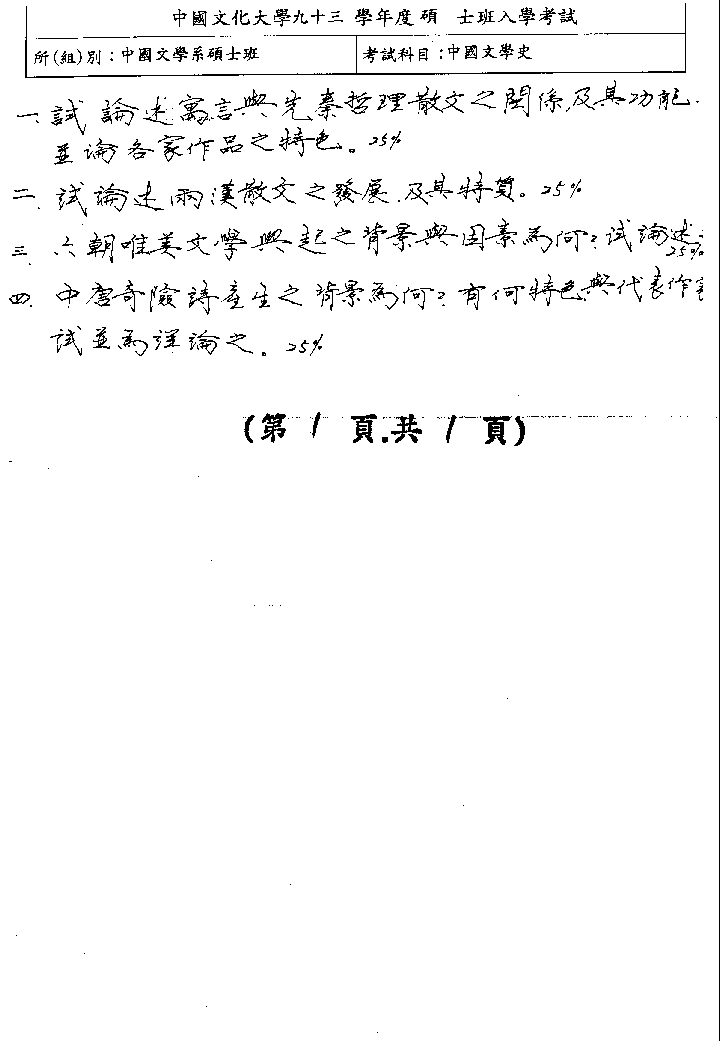 中國文化大學九十三 學年度碩 士班入學考試
所(組)別：中國文學系碩士班 考試科目：中國文學史
一、試論述寓言與先秦哲理散文之關係,及其功能.
並論各家作品之特色。25%
二、試論述兩漢散文之發展,及其特質。25%
三、六朝唯美文學興起之背景與因素為何?試論述之 25%
四、中唐奇險詩產生之背景為何?有何特色與代表作家
試並為詳論之。25%
(第 1 頁.共 1 頁)